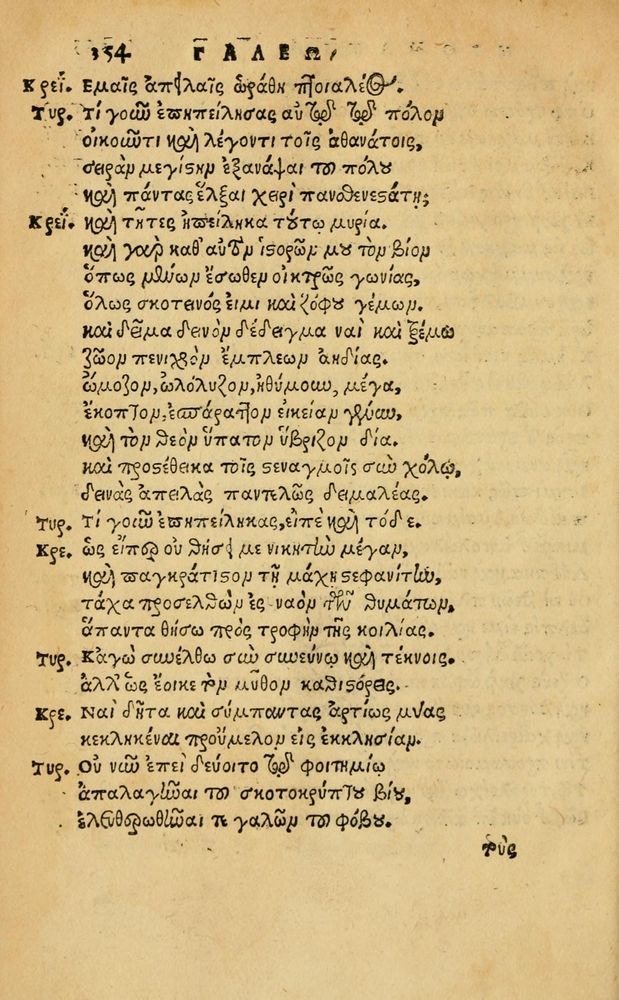 354 ΓΑΛΕΩ
Κρεΐ. Εμαῖς ἀπειλαῖς ὡράθη ποιαλέος.
Τυρ. Τί γοιῶ ἐπηπείλησας αὐτῷ τῷ πόλον
οἰκοιῶτι καὶ λέγοντι τοῖς ἀθανάτοις,
σειρὰν μεγίςην ἐξανάψαι τοῦ πόλου
καὶ πάντας ἕλξαι χειρὶ πανσθενεςάτῃ;
Κρεΐ. καὶ τῆτες ἠπείληκα τούτῳ μυρία.
καὶ γαρ καθ' αυτὸν ἱςορῶν μου τὸν βίον
ὅπως μθύων ἔσωθεν οἰκτρῶς γωνίας,
ὅλως σκοτεινός εἰμι καὶ ζόφου γέμων.
καὶ δεῖμα δεινὸν δέδειγμα ναὶ καὶ ξένω
ζῶον πενιχρὸν ἔμπλεων ἀηδίας.
ὤμοζον, ὠλόλυζον, ἠθύμουν, μέγα,
ἔκοπτον, ἐσπάραττον εἰκείαν γένυν,
καὶ τὸν θεὸν ὕπατον ὕβριζον δία.
καὶ προςέθεικα τοῖς ςεναγμοῖς σὺν χόλῳ,
δεινὰς ἀπειλὰς παντελῶς δειμαλέας.
Τυρ. Τί γοιῶ ἐπηπείληκας, εἰπὲ καὶ τόδε.
Κρε. ὡς εἴπερ οὐ θήσει με νικητὼ μέγαν,
καὶ παγκράτιςον τῇ μάχῃ ςεφανίτὼ,
τάχα προσελθὼν ἐς ναὸν τῶν θυμάτων,
ἅπαντα θήσω πρὸς τροφὴν τῆς κοιλίας.
Τυρ. Κἀγὼ σιωέλθω σιὼ σιωεύνῳ καὶ τέκνοις.
ἀλλ' ὡς ἔοικε τὸν μῦθον καθιςόρεις.
Κρε. Ναὶ δῆτα καὶ σύμπαντας ἀρτίως μύας
κεκληκέναι προὔμελον εἰς ἐκκλησίαν.
Τυρ. Οὐ νιῶ ἐπεὶ δεύοιτο τῷ φοιτημίῳ
ἀπαλαγιῶαι τοῦ σκοτοκρύπτου βίου,
ἐλευθερωθιῶαι τε γαλῶν τοῦ φόβου.
τρὺς